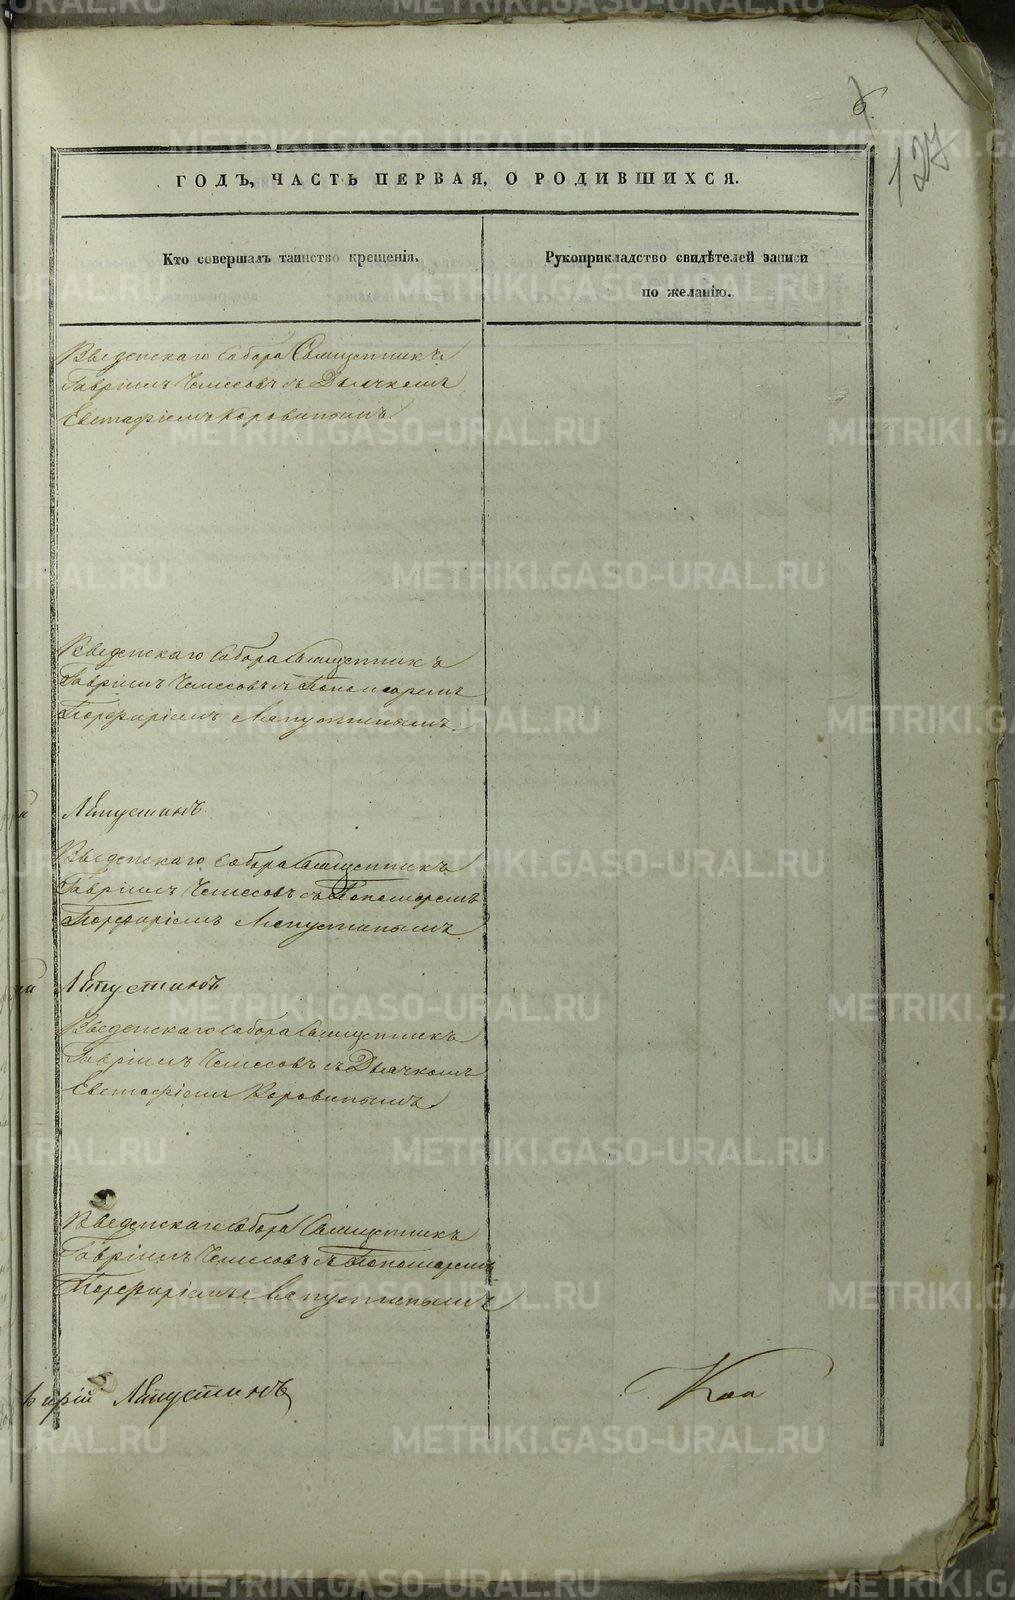 6.
127
ГОДЪ, ЧАСТЬ ПЕРВАЯ, О РОДИВШИХСЯ.
Кто совершалъ таинство крещенія.
Рукоприкладство свидѣтелей записи
по желанію.
Введенскаго Собора Священникъ
Гавріилъ Чемесовъ съ Дьячкомъ
Евстафіемъ Коровинымъ
Введенскаго Собора Священникъ
Гавріилъ Чемесовъ съ Пономаремъ
Порфиріемъ Лапустинымъ
Введенскаго Собора Священникъ
Гавріилъ Чемесовъ съ Пономаремъ
Порфиріемъ Лапустинымъ
Введенскаго Собора Священникъ
Гавріилъ Чемесовъ съ Дьячкомъ
Евстафіемъ Коровинымъ
Введенскаго Собора Священникъ
Гавріилъ Чемесовъ съ Пономаремъ
Порфиріемъ Лапустинымъ
METRIKI.GASO-URAL.RU